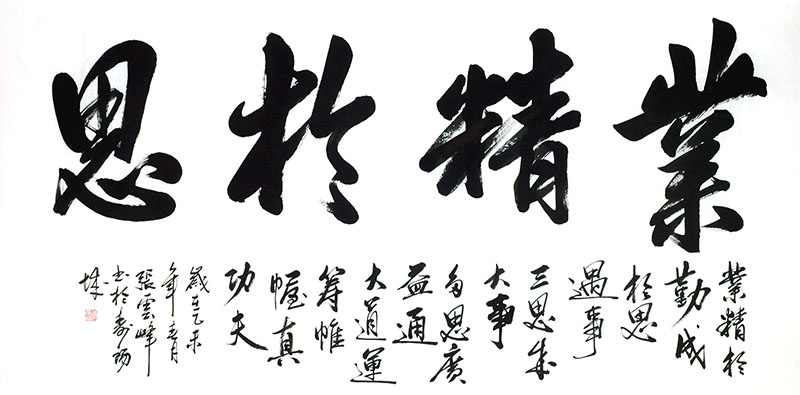 業精於思
業精於
勤成
於思
遇事
三思成
大事
多思廣
益通
大道運
籌帷
幄真
功夫
歲在乙未
年春月
張雲峰
書於
城